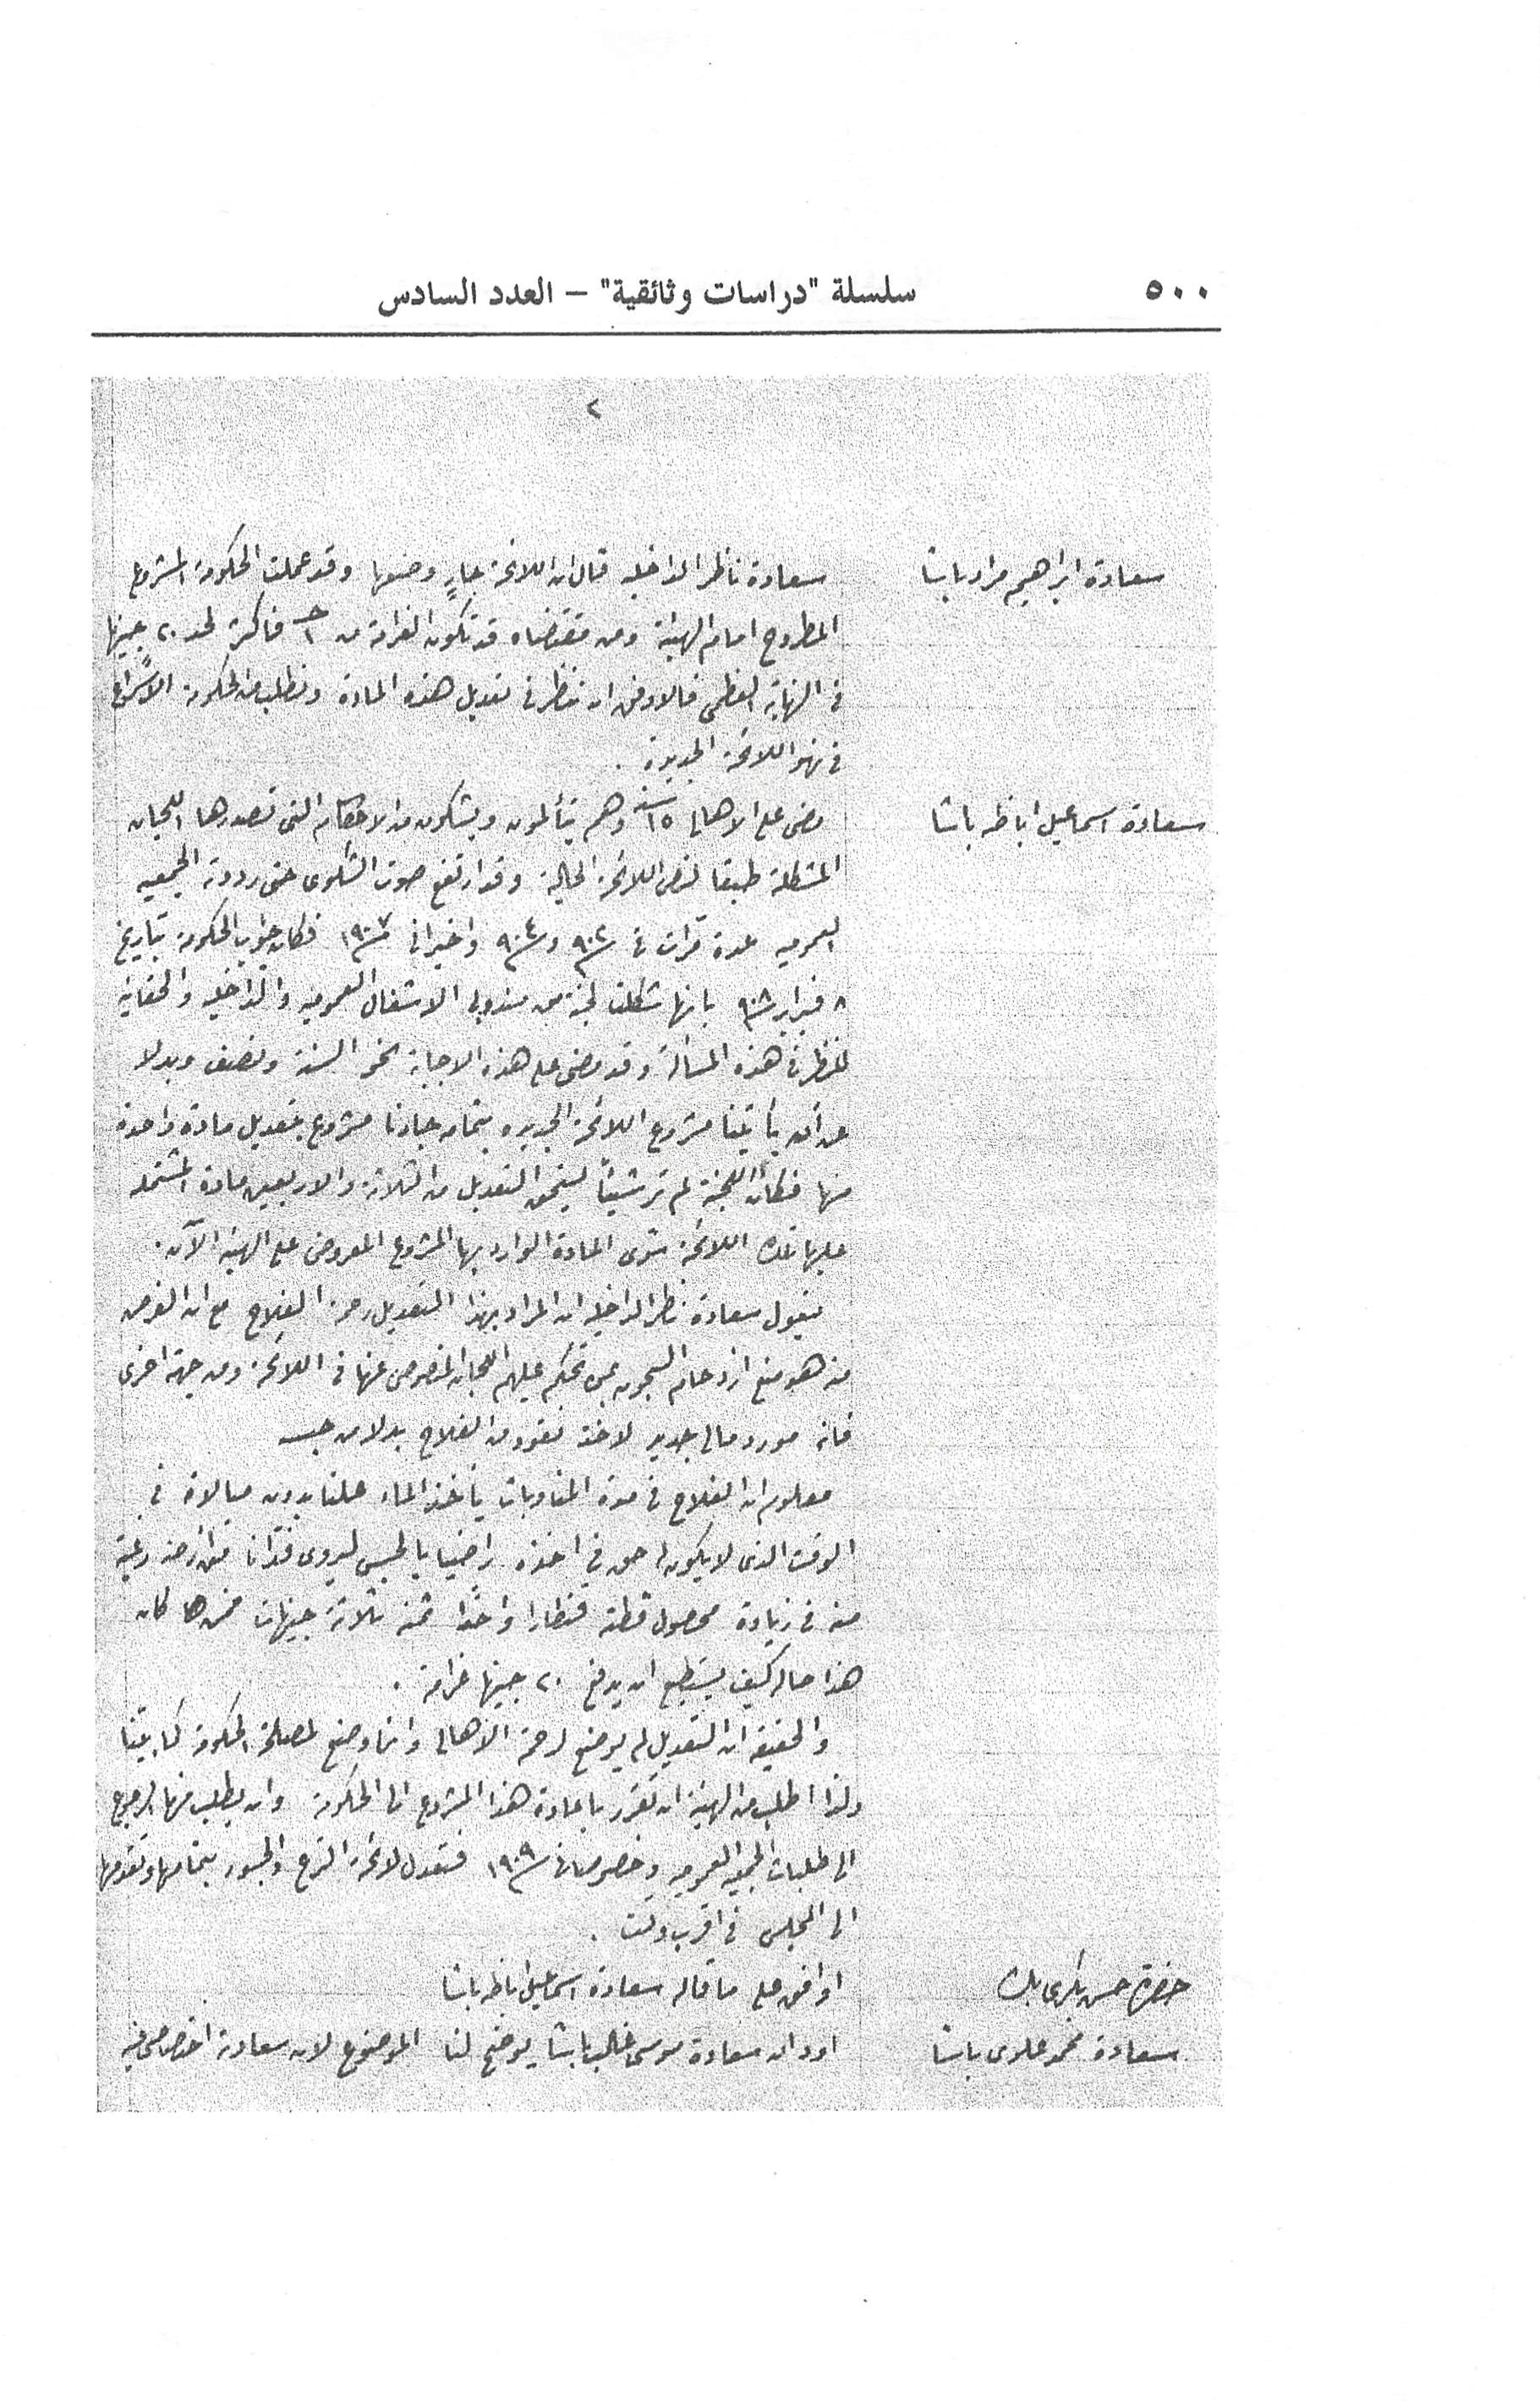 ٥٠٠
سلسلة "دراسات وثائقية" – العدد السادس
٢
سعادة ابراهيم مراد باشا
سعادة ناظر الداخليه قال ان اللائحة جارٍ وضعها وقد عملت الحكومة المشروع
المطروح امام الهيئة ومن مقتضاه قد تكون الغرامة من فاكثر لحد ٢٠ جنيها
فى النهاية العظمى فالاوفق ان ننظر فى تعديل هذه المادة ونطلب من الحكومة الاسراع
فى نهو اللائحة الجديدة .
سعادة اسماعيل اباظه باشا
مضى على الاهالى ١٥ سنة وهم يتألمون ويشكون من الاحكام التى تصدرها اللجان
المشكلة طبقا لنص اللائحة الحالية وقد ارتفع صوت الشكوى حتى رددته الجمعيه
العموميه عدة مرات فى سنة ٩٠٢ وسنة ٩٠٤ واخيرا فى سنة ١٩٠٧ فكان جواب الحكومة بتاريخ
٨ فبراير سنة ٩٠٨ بانها شكلت لجنة من مندوبى الاشغال العموميه والداخليه والحقانية
للنظر فى هذه المسألة وقد مضى على هذه الاجابة نحو السنة ونصف وبدلا
عن أن يأتينا مشروع اللائحة الجديده بتمامه جاءنا مشروع بتعديل مادة واحدة
منها فكأن اللجنة لم تر شيئاً يستحق التعديل من الثلاثة والاربعين مادة المشتملة
عليها تلك اللائحة سوى المادة الوارد بها المشروع المعروض على الهيئة الآن .
يقول سعادة ناظر الداخلية ان المراد بهذا التعديل رحمة الفلاح مع ان الغرض
منه هو منع ازدحام السجون بمن تحكم عليهم اللجان المنصوص عنها فى اللائحة ومن جهة اخرى
فانه مورد مالى جديد لاخذ نقود من الفلاح بدلا من حبسه
معلوم ان الفلاح فى مدة المناوبات يأخذ الماء علنا بدون مبالاة فى
الوقت الذى لا يكون له حق فى اخذه راضيا بالحبس ليروى فدانا من ارضه رغبة
منه فى زيادة محصول قطنه قنطارا واحدا ثمنه ثلاثة جنيهات فمن ها كان
هذا حاله كيف يستطيع ان يدفع ٢٠ جنيها غرامة .
والحقيقة ان التعديل لم يوضع لرحمة الاهالى وانما وضع لمصلحة الحكومة كما بيّنا
ولذا اطلب من الهيئة ان تقرر باعادة هذا المشروع الى الحكومة وان يطلب منها الرجوع
الى طلبات الجمعيه العموميه وخصوصا فى سنة ١٩٠٩ فتعدل لائحة الترع والجسور بتمامها وتقدمها
الى المجلس فى اقرب وقت .
حضرة حسن بكرى بك
اوافق على ما قاله سعادة اسماعيل اباظه باشا
سعادة محمد علوى باشا
اود ان سعادة موسى غالب باشا يوضح لنا الموضوع لان سعادته اخصاصى فيه